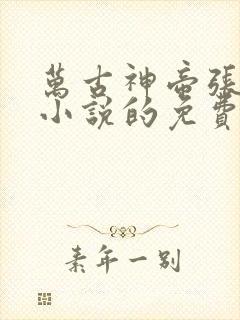 萬古神帝張
小說的免費
素年一別